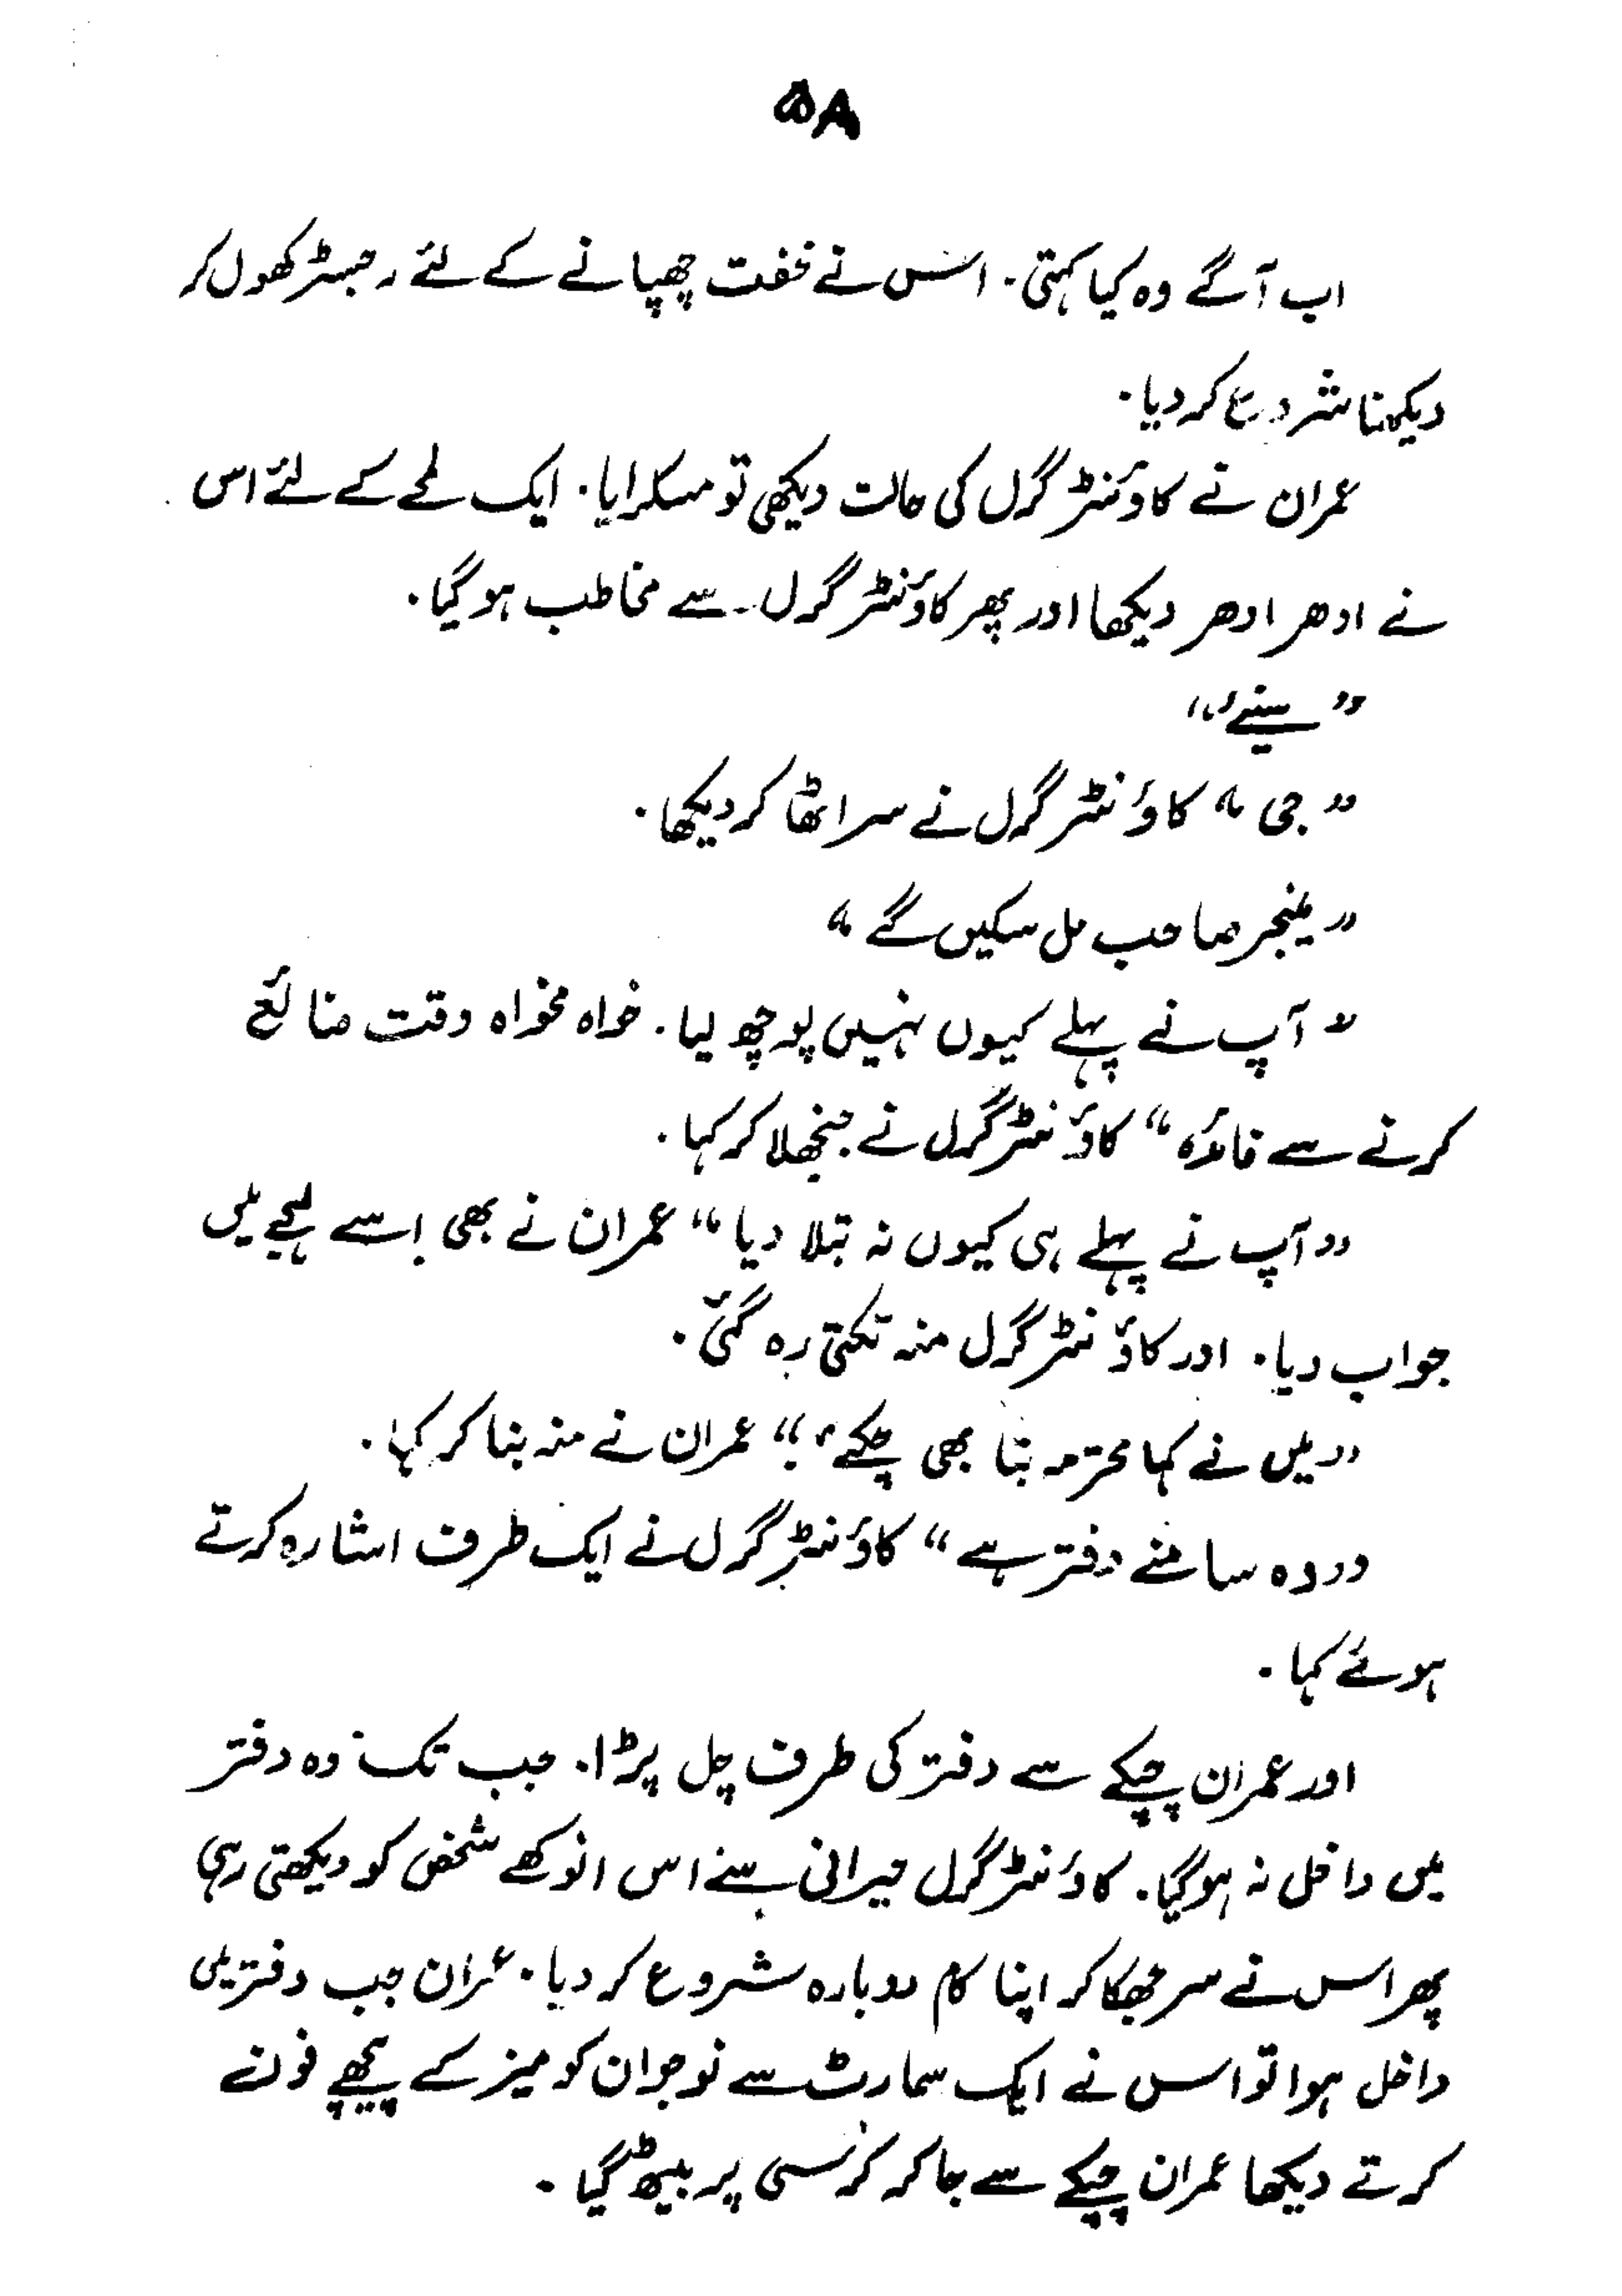 ۵۸
اب آگے وہ کیا کہتی۔ اس نے خفت چھپانے کے لئے رجسٹر کھول کر
دیکھنا شروع کر دیا۔
عمران نے کاؤنٹر گرل کی حالت دیکھی تو مسکرایا۔ ایک لمحے کے لئے اس
نے ادھر ادھر دیکھا اور پھر کاؤنٹر گرل سے مخاطب ہو گیا۔
”سنیے“
”جی“ کاؤنٹر گرل نے سر اٹھا کر دیکھا۔
”منیجر صاحب مل سکیں گے“
”آپ نے پہلے کیوں نہیں پوچھ لیا۔ خواہ مخواہ وقت ضائع
کرنے سے فائدہ“ کاؤنٹر گرل نے جنجھلا کر کہا۔
”آپ نے پہلے ہی کیوں نہ بتلا دیا“ عمران نے بھی اسے لہجے میں
جواب دیا۔ اور کاؤنٹر گرل منہ تکتی رہ گئی۔
”میں نے کہا محترمہ بتا بھی چکے“ عمران نے منہ بنا کر کہا۔
”وہ سامنے دفتر ہے“ کاؤنٹر گرل نے ایک طرف اشارہ کرتے
ہوئے کہا۔
اور عمران چپکے سے دفتر کی طرف چل پڑا۔ جب تک وہ دفتر
میں داخل نہ ہو گیا۔ کاؤنٹر گرل حیرانی سے اس انوکھے شخص کو دیکھتی رہی
پھر اس نے سر جھکا کر اپنا کام دوبارہ شروع کر دیا۔ عمران جب دفتر میں
داخل ہوا تو اس نے ایک سمارٹ سے نوجوان کو میز کے پیچھے فون
کرتے دیکھا عمران چپکے سے جا کر کرسی پر بیٹھ گیا۔